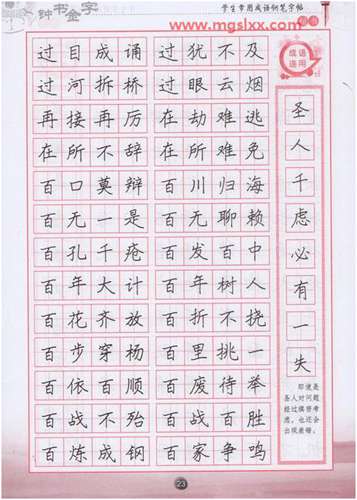 钟书金字
学生常用成语钢笔字帖
www.mgslxx.com
过目成诵 过犹不及
过河拆桥 过眼云烟
再接再厉 在劫难逃
在所不辞 在所难免
百口莫辩 百川归海
百无一是 百无聊赖
百孔千疮 百发百中
百年大计 百年树人
百花齐放 百折不挠
百步穿杨 百里挑一
百依百顺 百废待举
百战不殆 百战百胜
百炼成钢 百家争鸣
成语
连用
圣人千虑必有一失
即使是
圣人对问题
经过缜密考
虑，也还会
出现差错。
23